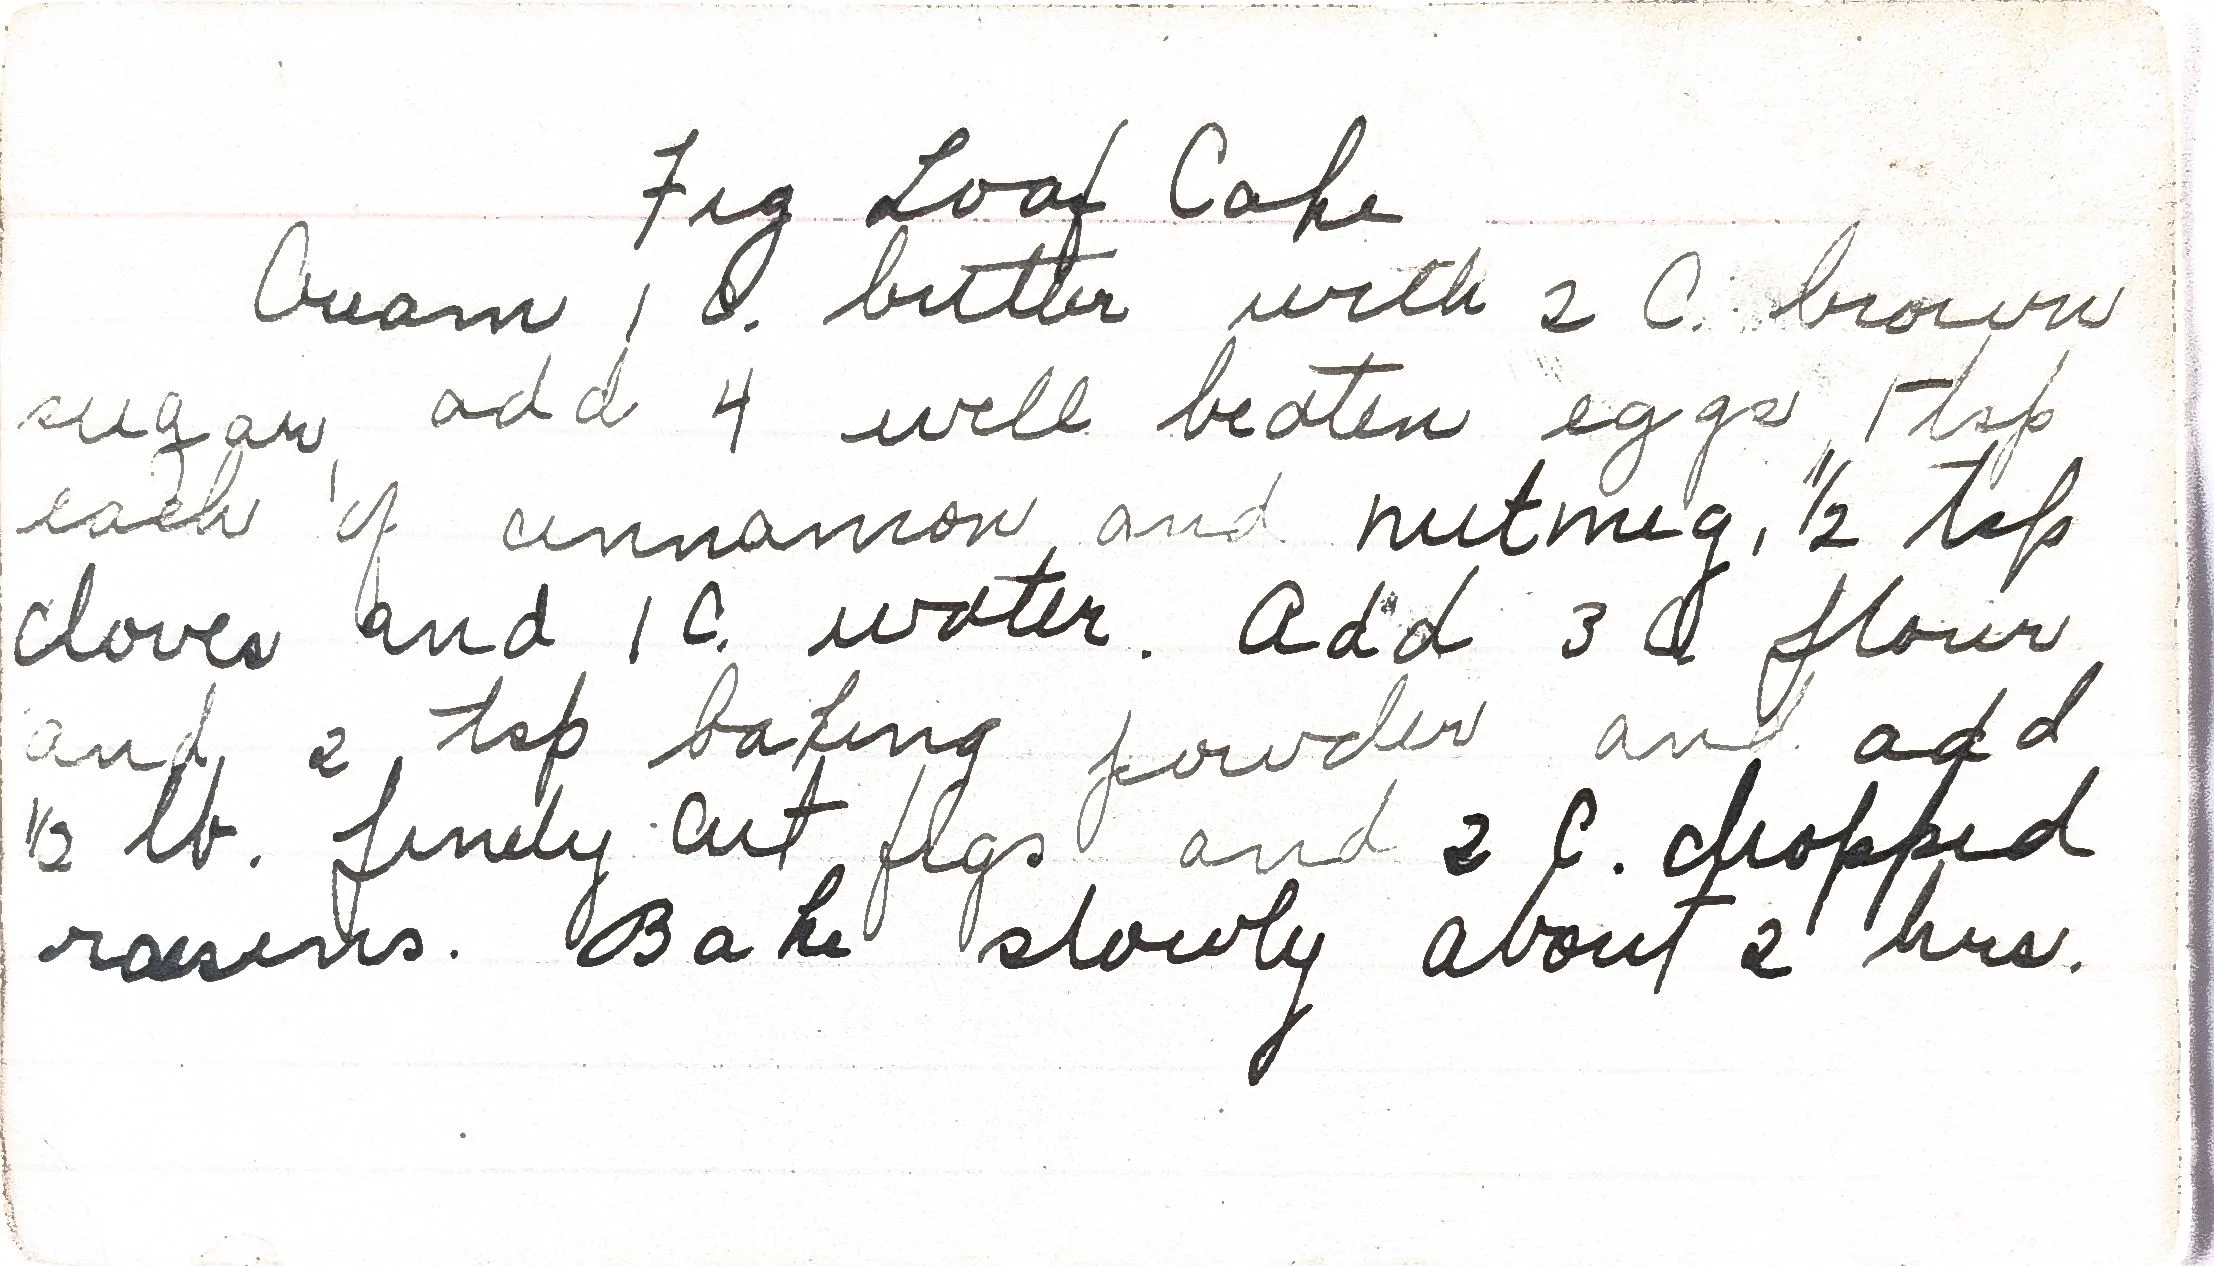 Fig Loaf Cake
Cream 1 C. butter with 2 C. brown
sugar, add 4 well beaten eggs, 1 tsp
each of cinnamon and nutmeg, 1/2 tsp
cloves and 1 C. water. Add 3 C flour
and 2 tsp baking powder and add
1/2 lb. finely cut figs and 2 C. chopped
raisins. Bake slowly about 2 hrs.